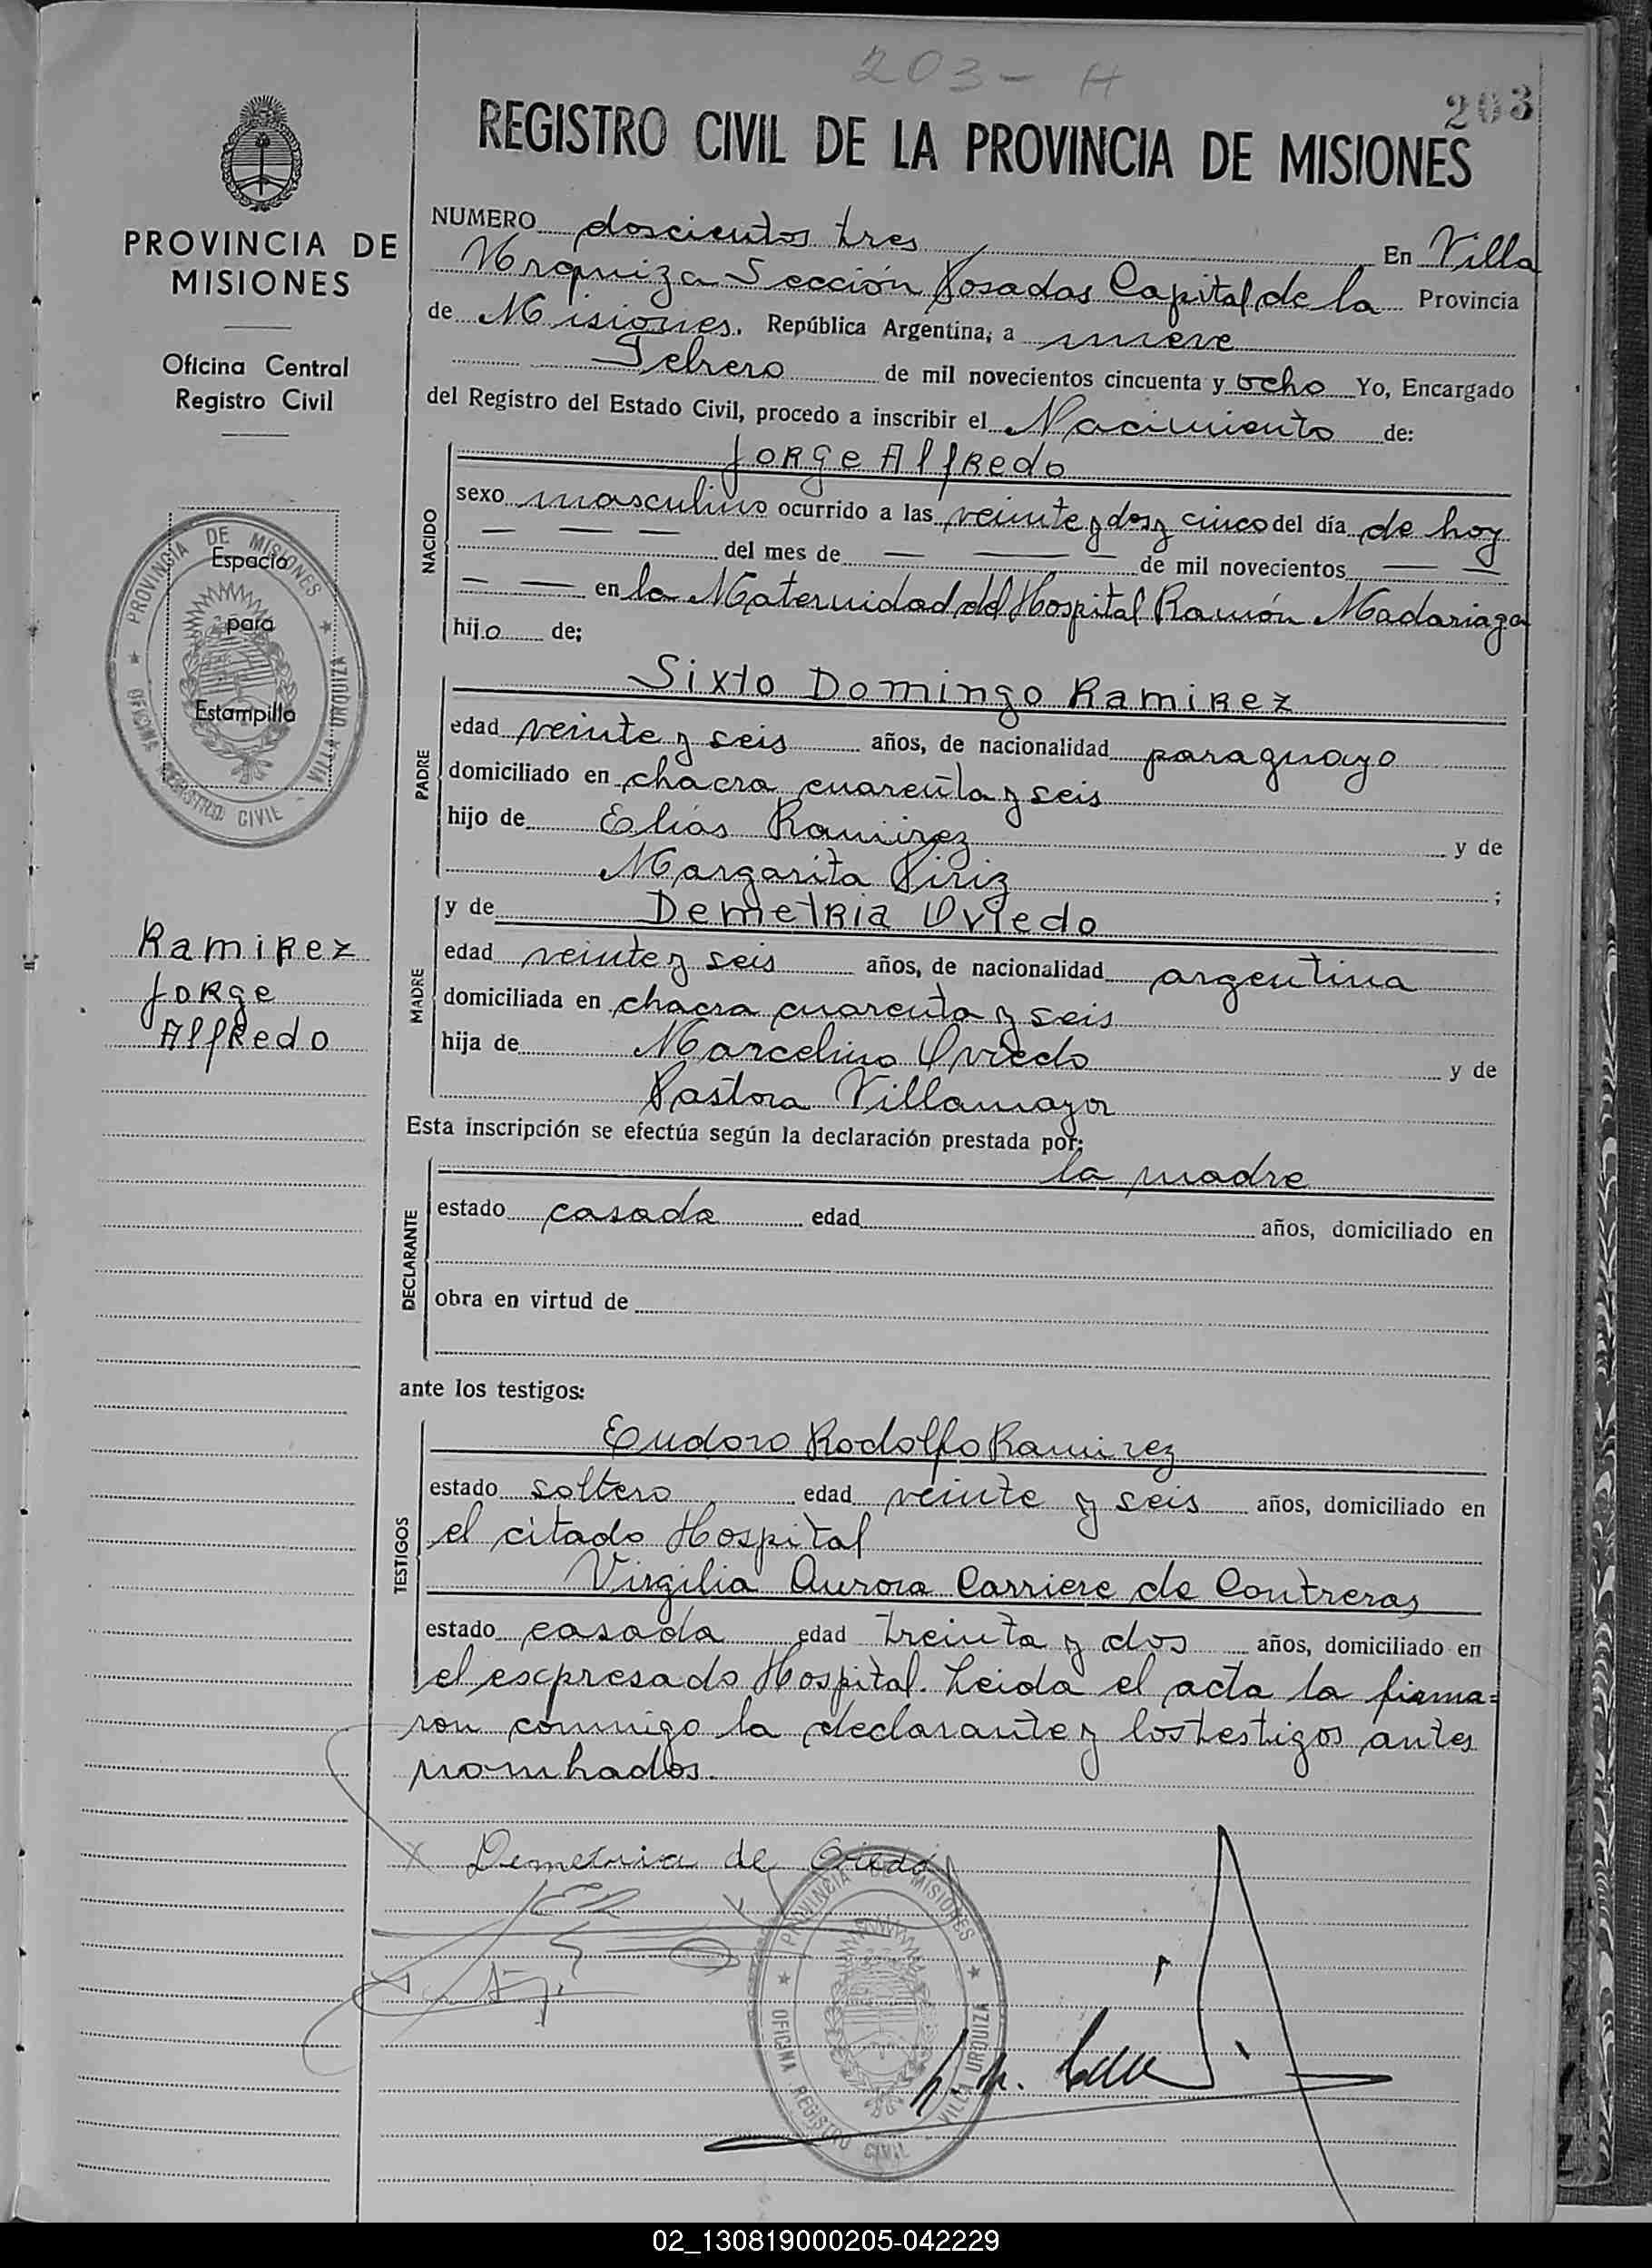 203 - H
203
REGISTRO CIVIL DE LA PROVINCIA DE MISIONES
PROVINCIA DE
MISIONES
Oficina Central
Registro Civil
PROVINCIA DE MISIONES ★ VILLA URQUIZA
OFICINA REGISTRO CIVIL
Espacio
para
Estampilla
Ramirez
Jorge
Alfredo
NUMERO doscientos tres En Villa
Urquiza Sección Posadas Capital de la Provincia
de Misiones, República Argentina, a nueve
Febrero de mil novecientos cincuenta y ocho Yo, Encargado
del Registro del Estado Civil, procedo a inscribir el Nacimiento de:
NACIDO
Jorge Alfredo
sexo masculino ocurrido a las veinte y dos y cinco del día de hoy
— — — del mes de — — — de mil novecientos — —
— — en la Maternidad del Hospital Ramón Madariaga
hijo de;
PADRE
Sixto Domingo Ramirez
edad veinte y seis años, de nacionalidad paraguayo
domiciliado en chacra cuarenta y seis
hijo de Elias Ramirez y de
Margarita Piriz ;
MADRE
y de Demetria Oviedo
edad veinte y seis años, de nacionalidad argentina
domiciliada en chacra cuarenta y seis
hija de Marcelino Oviedo y de
Pastora Villamayor
Esta inscripción se efectúa según la declaración prestada por;
DECLARANTE
la madre
estado casada edad años, domiciliado en
obra en virtud de
ante los testigos:
TESTIGOS
Eudoro Rodolfo Ramirez
estado soltero edad veinte y seis años, domiciliado en
el citado Hospital
Virgilia Aurora Carriere de Contreras
estado casada edad treinta y dos años, domiciliado en
el escpresado Hospital. Leida el acta la firma=
ron conmigo la declarante y los testigos antes
nombados.
x Demetria de Oviedo
PROVINCIA DE MISIONES ★ VILLA URQUIZA
OFICINA REGISTRO CIVIL
02_130819000205-042229